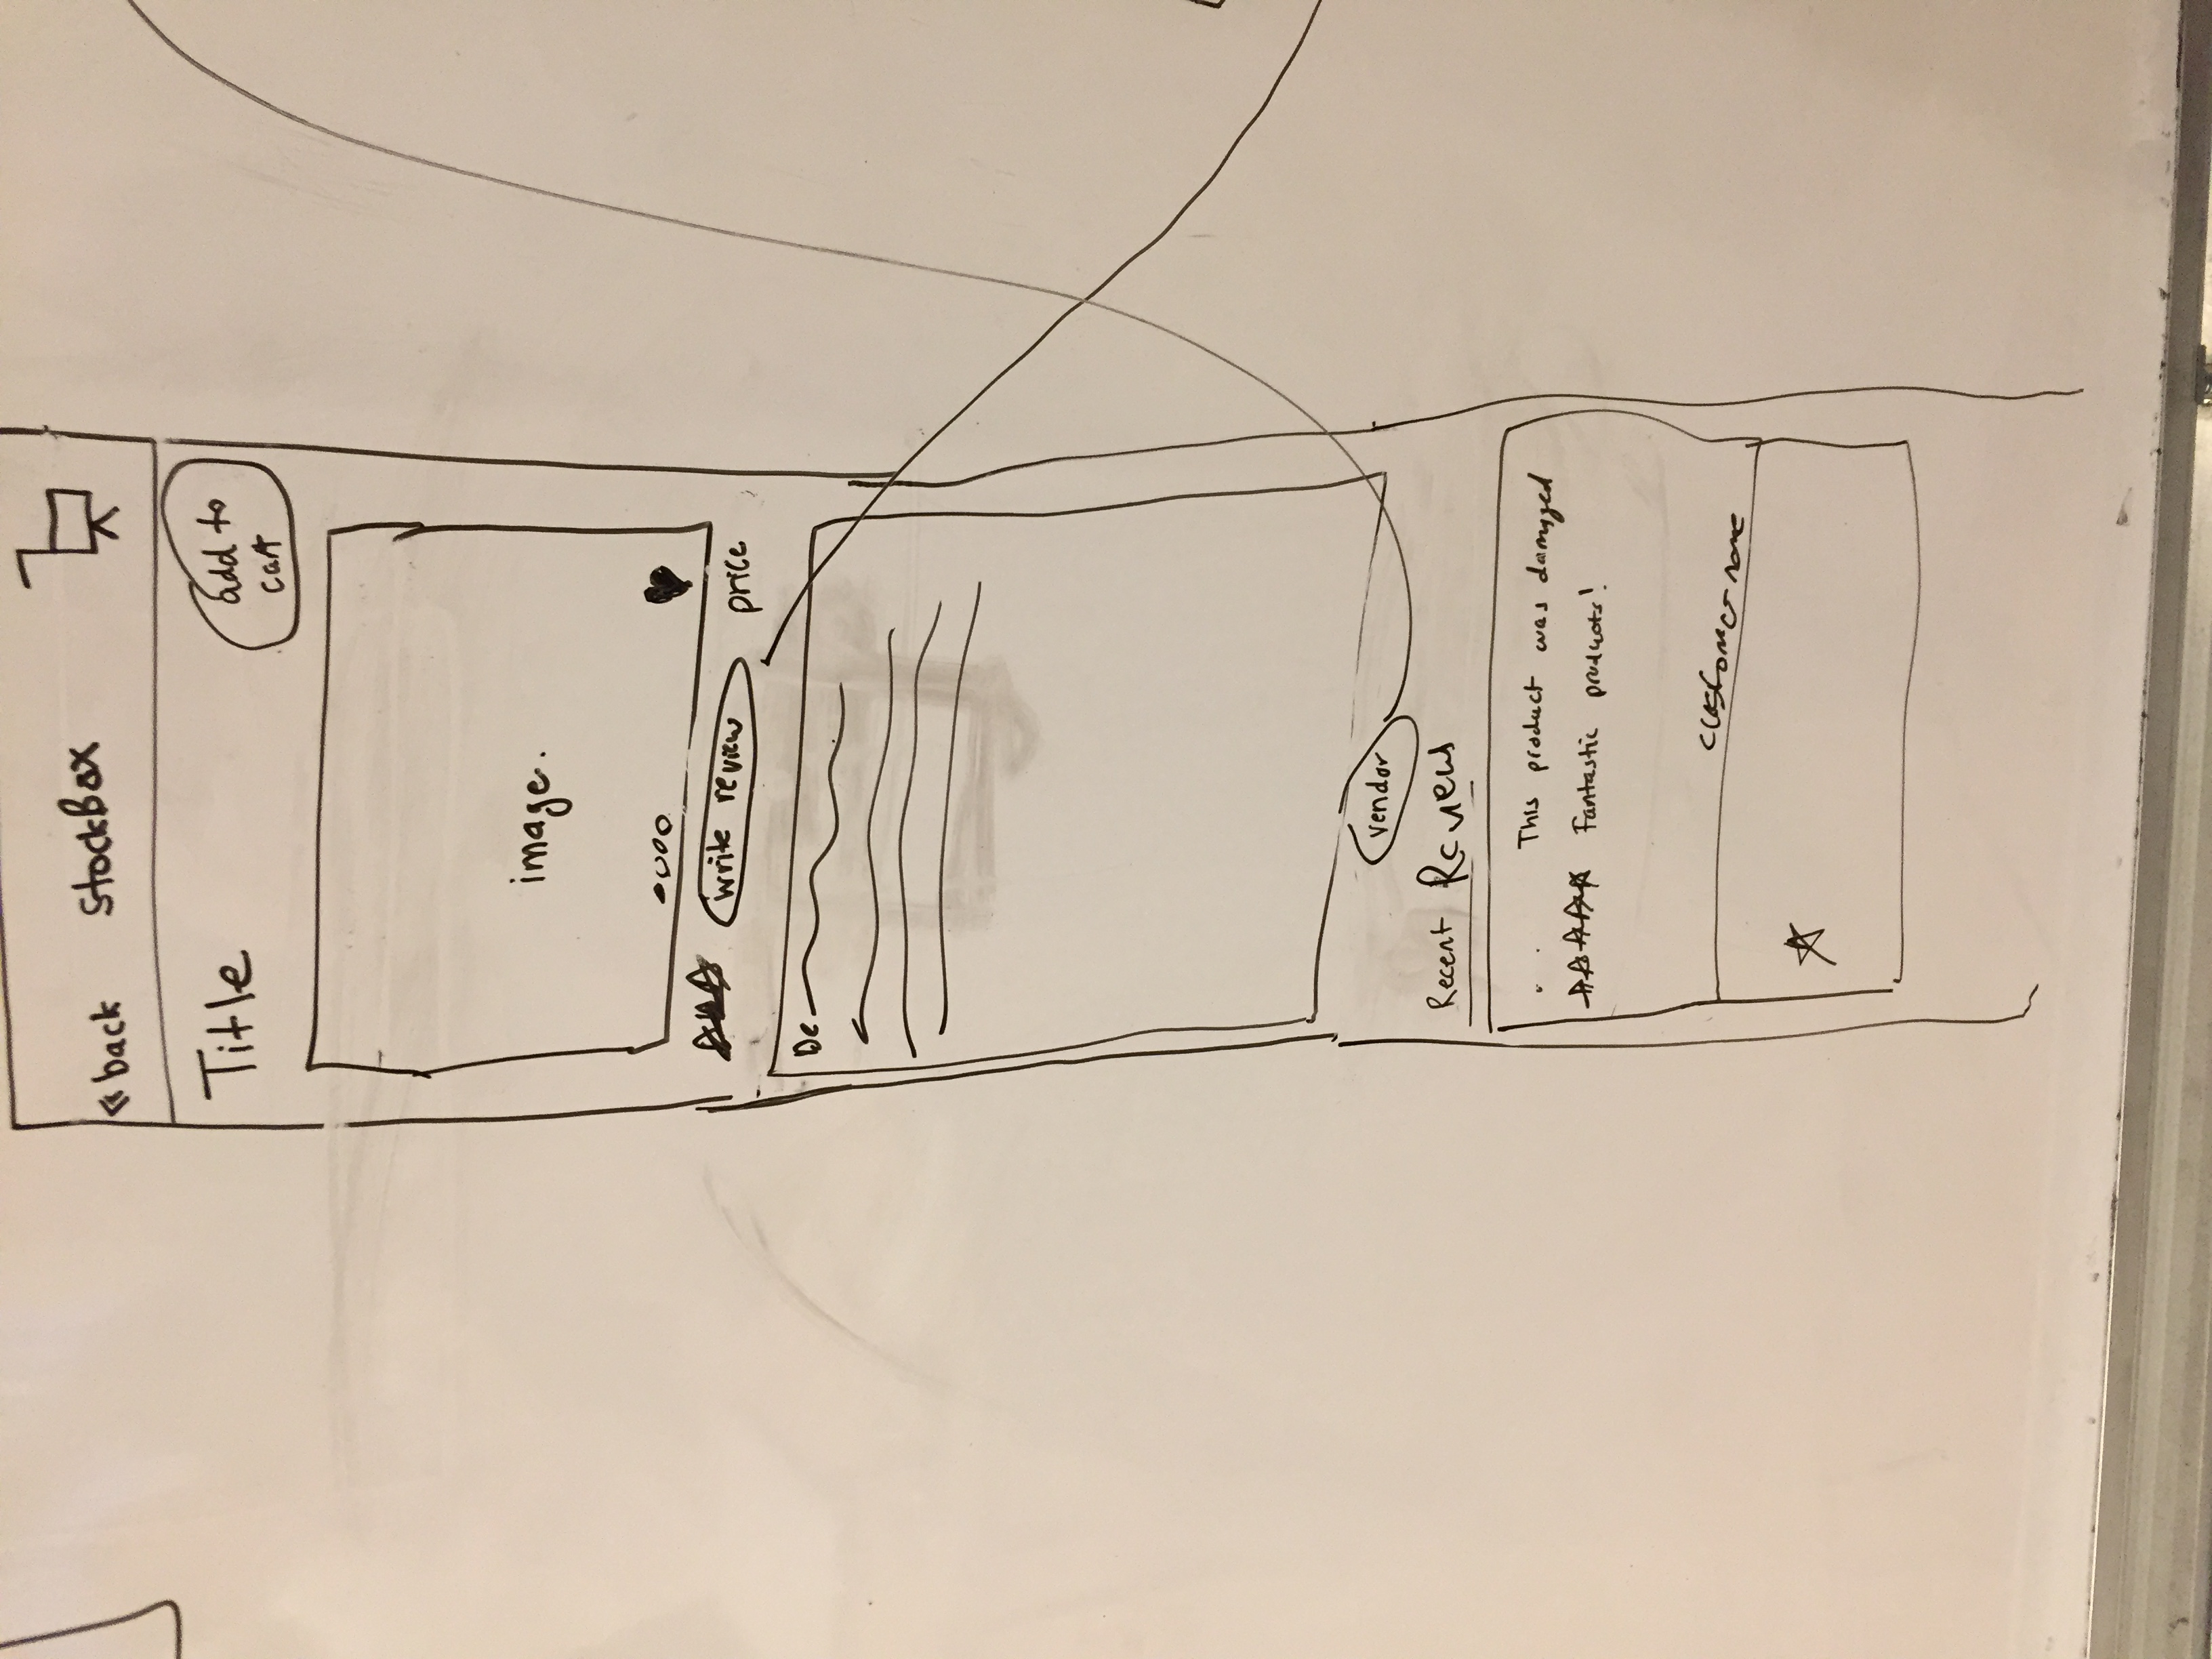 << back stockBox
Title
add to
cart
image.
write review price
De
vendor
Recent Reviews
This product was damaged
Fantastic products!
customer name